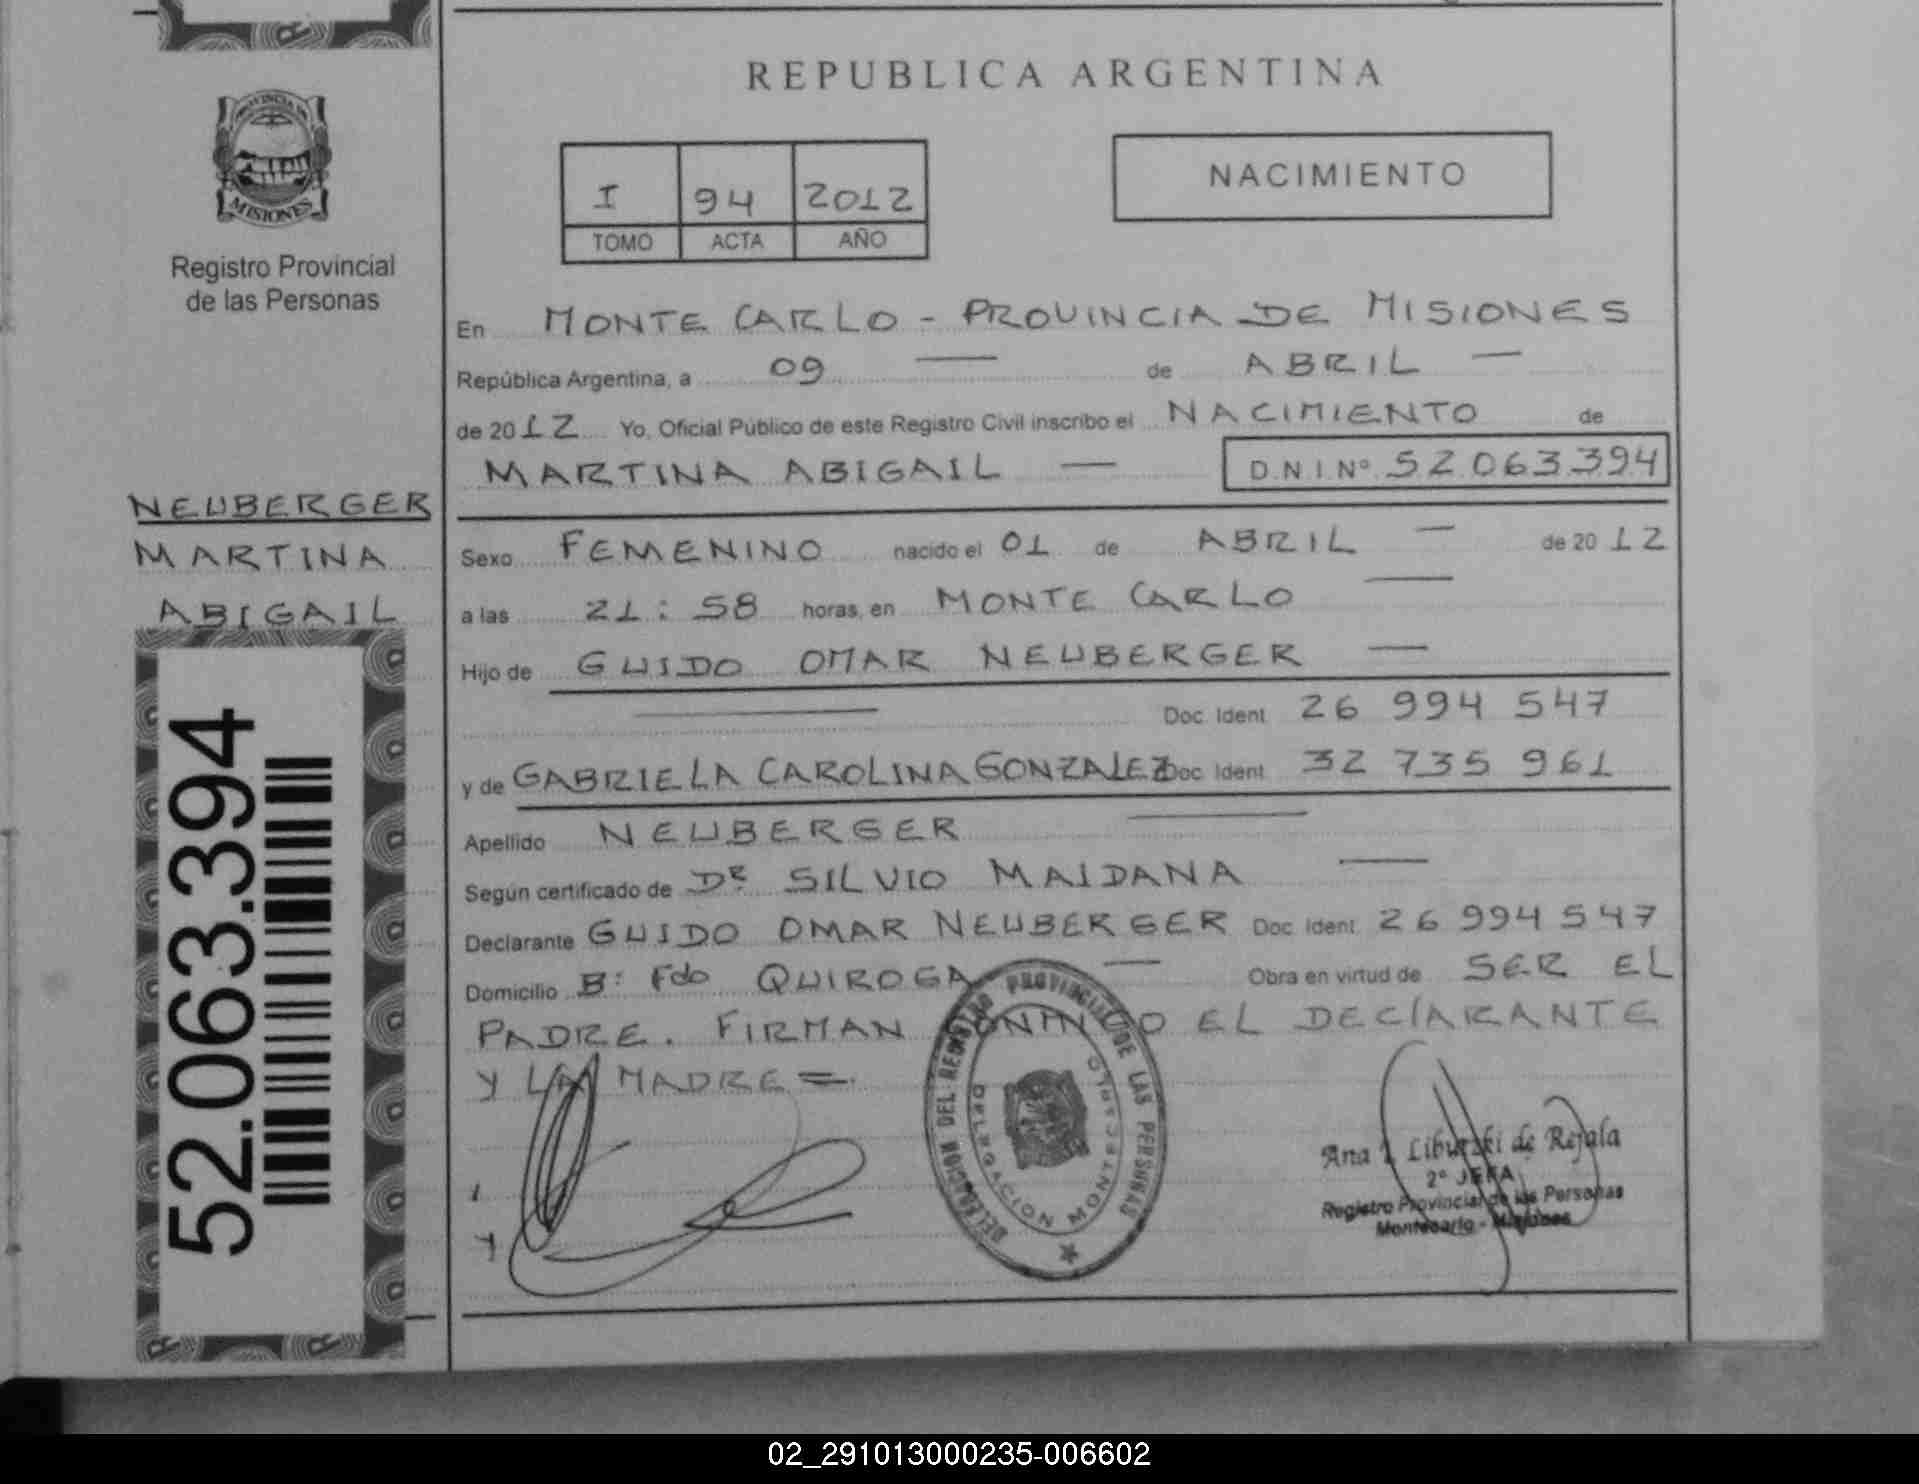 REPUBLICA ARGENTINA
PROVINCIA DE
MISIONES
Registro Provincial
de las Personas
I 94 2012
TOMO ACTA AÑO
NACIMIENTO
En MONTE CARLO - PROVINCIA DE MISIONES
República Argentina, a 09 — de ABRIL —
de 2012 Yo, Oficial Público de este Registro Civil inscribo el NACIMIENTO de
MARTINA ABIGAIL — D.N.I.Nº 52.063.394
NEUBERGER
MARTINA
ABIGAIL
52.063.394
Sexo FEMENINO nacido el 01 de ABRIL — de 2012
a las 21:58 horas, en MONTE CARLO —
Hijo de GUIDO OMAR NEUBERGER —
— Doc. Ident. 26 994 547
y de GABRIELA CAROLINA GONZALEZ Doc. Ident. 32 735 961
Apellido NEUBERGER —
Según certificado de Dr. SILVIO MAIDANA —
Declarante GUIDO OMAR NEUBERGER Doc. Ident. 26 994 547
Domicilio Bº Fdo QUIROGA — Obra en virtud de SER EL
PADRE. FIRMAN CONMIGO EL DECLARANTE
Y LA MADRE =.
DELEGACION DEL REGISTRO PROVINCIAL DE LAS PERSONAS
DELEGACION MONTECARLO
Ana de Rejala
2º JEFA
Registro Provincial de las Personas
Montecarlo - Misiones
02_291013000235-006602